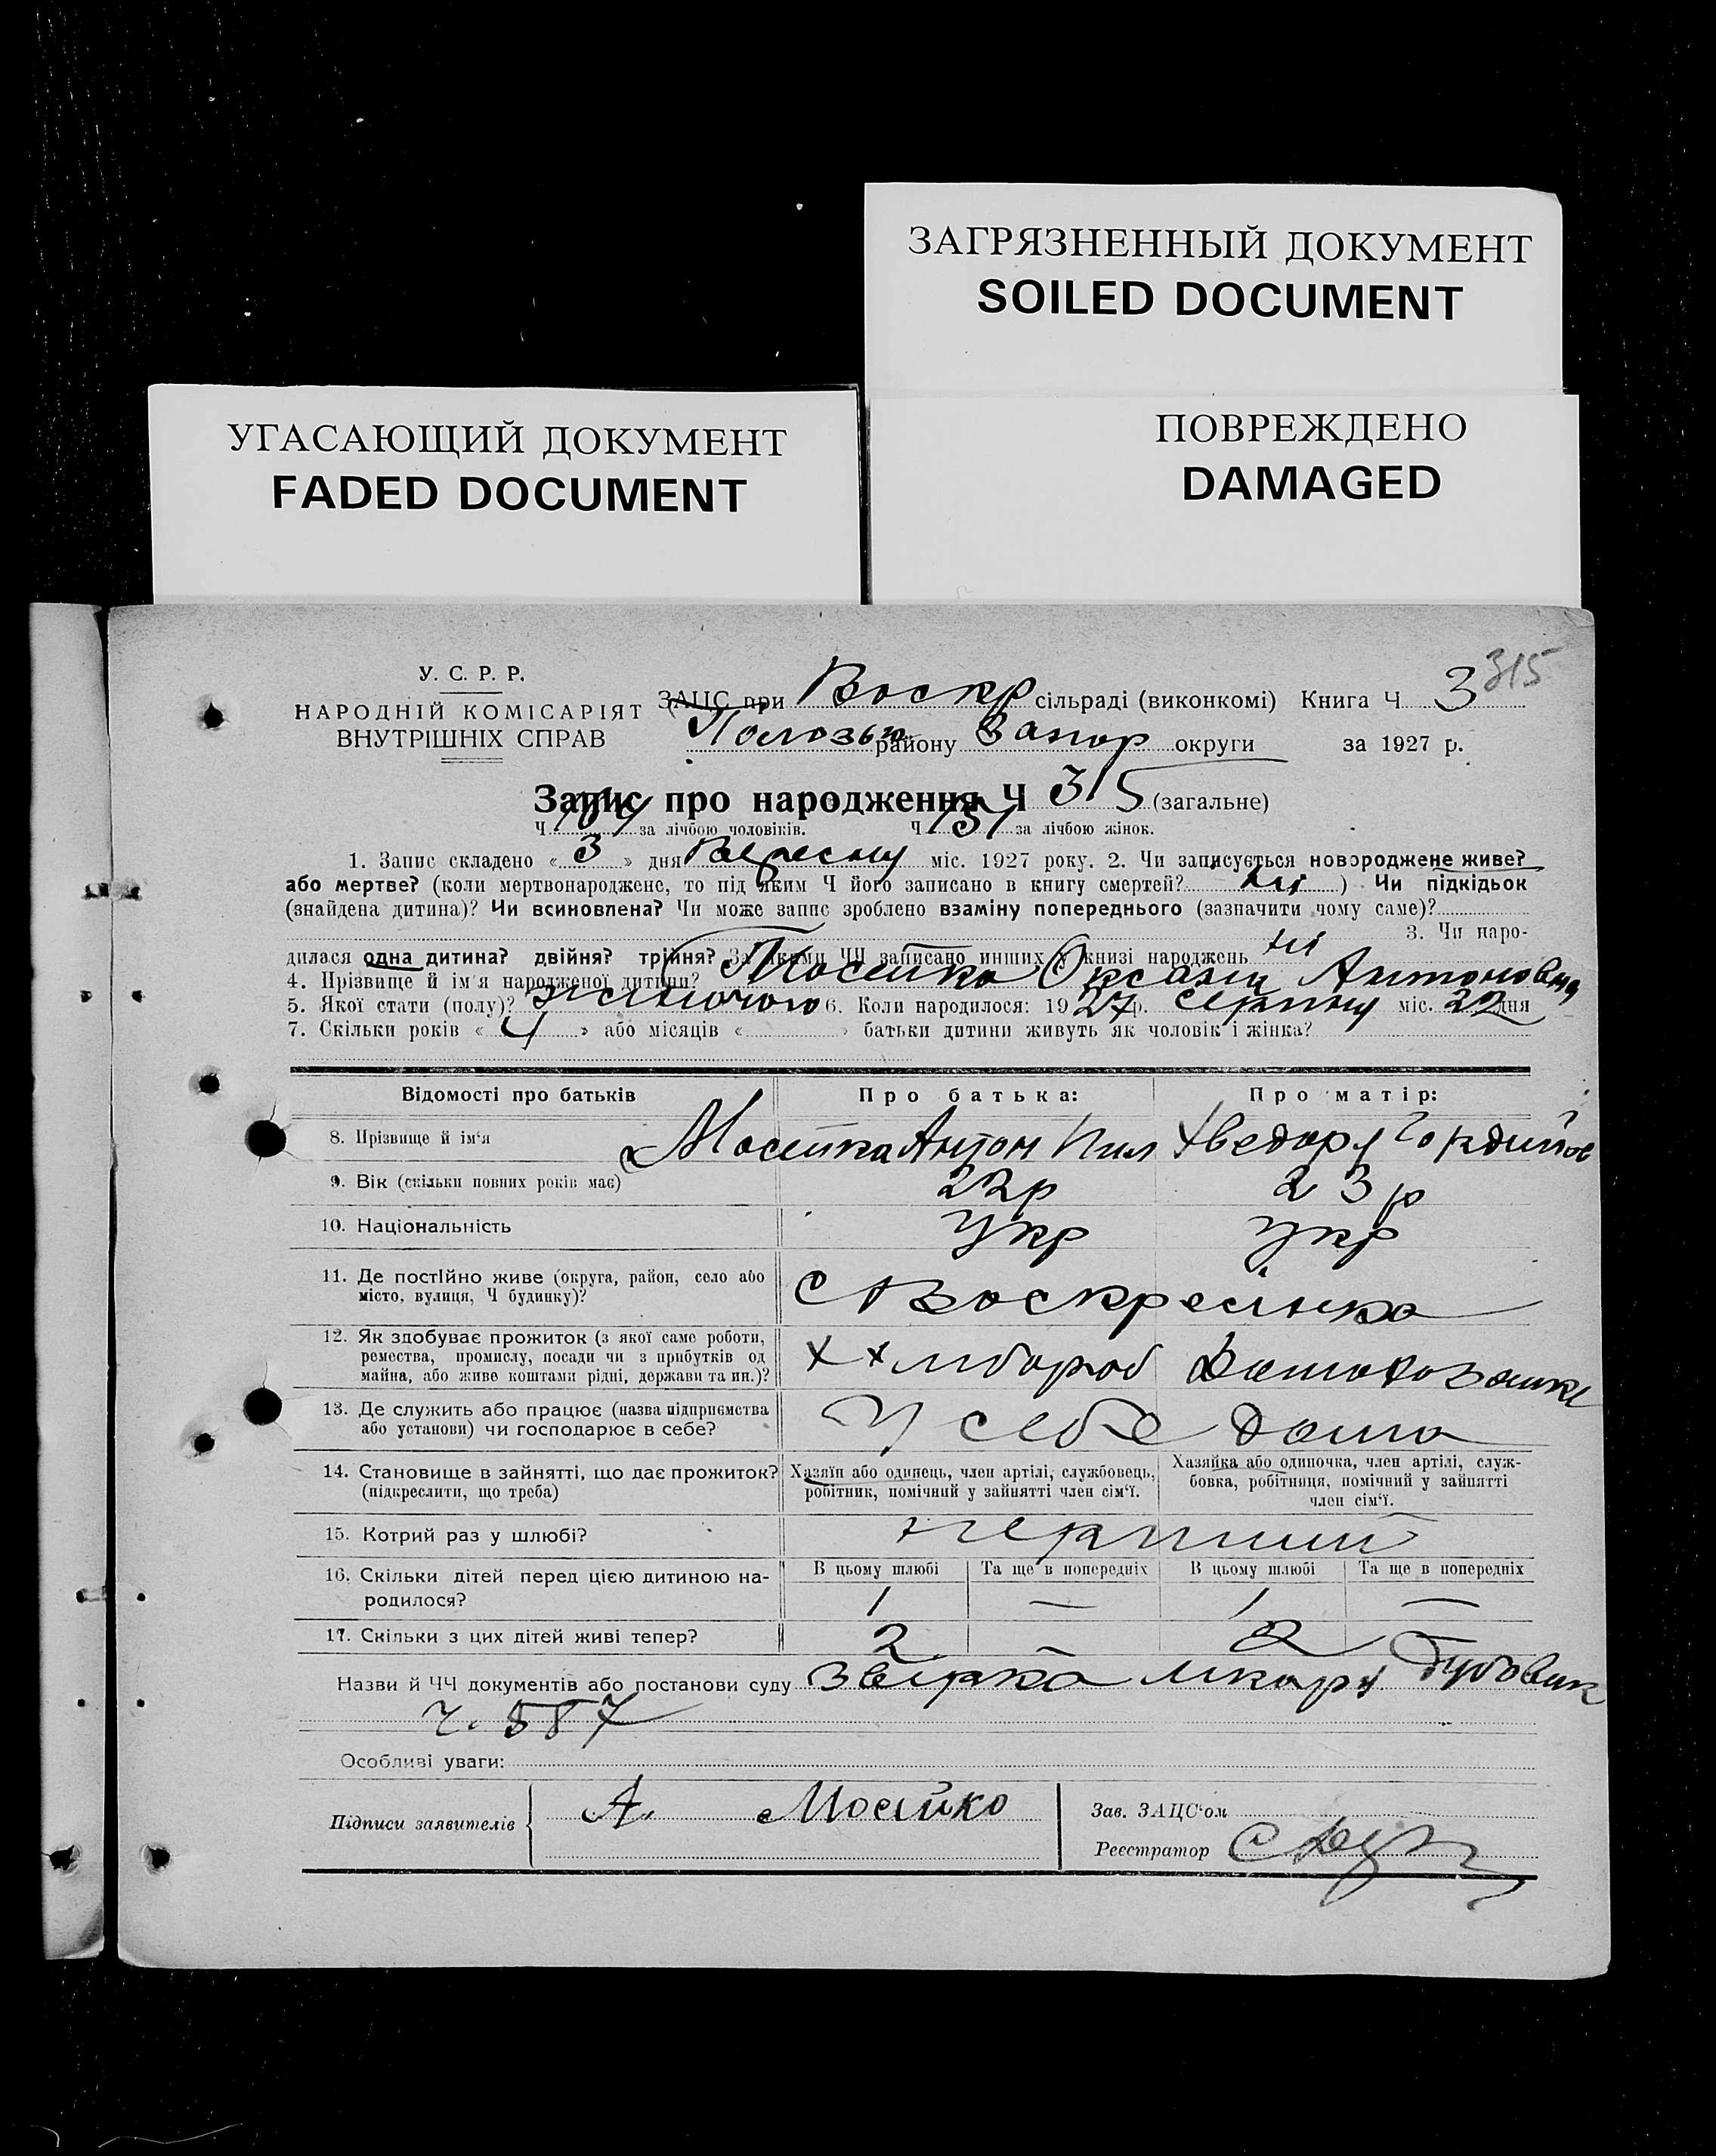 ЗАГРЯЗНЕННЫЙ ДОКУМЕНТ
SOILED DOCUMENT
УГАСАЮЩИЙ ДОКУМЕНТ
FADED DOCUMENT
ПОВРЕЖДЕНО
DAMAGED
315
У. С. Р. Р.
НАРОДНІЙ КОМІСАРІЯТ
ВНУТРІШНІХ СПРАВ
ЗАЦС при Воскр сільраді (виконкомі) Книга Ч 3
району Запор округи за 1927 р.
Запис про народження Ч 315 (загальне)
Ч за лічбою чоловіків. Ч 151 за лічбою жінок.
1. Запис складено « 3 » дня Вересня міс. 1927 року. 2. Чи записується новороджене живе?
або мертве? (коли мертвонароджене, то під яким Ч його записано в книгу смертей? ні ) Чи підкідьок
(знайдена дитина)? Чи всиновлена? Чи може запис зроблено взаміну попереднього (зазначити чому саме)?
3. Чи наро-
дилася одна дитина? двійня? трійня? За якими ЧЧ записано инших у книзі народжень ні
4. Прізвище й ім'я народженої дитини? Мосейко Оксана Антоновна
5. Якої стати (полу)? жіночого 6. Коли народилося: 1927 р. серпня міс. 22 дня
7. Скільки років « 4 » або місяців « » батьки дитини живуть як чоловік і жінка?
Відомості про батьків Про батька: Про матір:
8. Прізвище й ім'я Мосейка Антон Пил Хведора Гордийов
9. Вік (скільки повних років має) 22р 23р
10. Національність Укр Укр
11. Де постійно живе (округа, район, село або
місто, вулиця, Ч будинку)? с Воскресінка
12. Як здобуває прожиток (з якої саме роботи,
ремества, промислу, посади чи з прибутків од
майна, або живе коштами рідні, держави та ин.)?
13. Де служить або працює (назва підприємства
або установи) чи господарює в себе? У себе дома
14. Становище в зайнятті, що дає прожиток?
(підкреслити, що треба)
Хазяїн або одинець, член артілі, службовець,
робітник, помічний у зайнятті член сім'ї.
Хазяйка або одиночка, член артілі, служ-
бовка, робітниця, помічний у зайнятті
член сім'ї.
15. Котрий раз у шлюбі? перший
16. Скільки дітей перед цією дитиною на-
родилося?
В цьому шлюбі Та ще в попередніх В цьому шлюбі Та ще в попередніх
1 — 1 —
17. Скільки з цих дітей живі тепер? 2 — 2 —
Назви й ЧЧ документів або постанови суду
ч. 587
Особливі уваги:
Підписи заявителів А. Мосейко
Зав. ЗАЦС'ом
Реєстратор